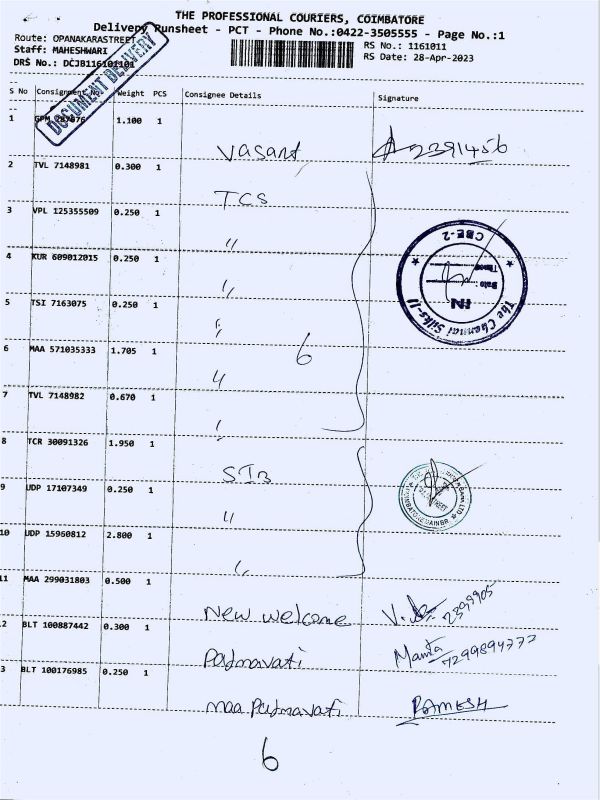 THE PROFESSIONAL COURIERS, COIMBATORE
Delivery Runsheet - PCT - Phone No.:0422-3505555 - Page No.:1
Route: OPANAKARASTREET
Staff: MAHESHWARI
DRS No.: DCJB116101101
RS No.: 1161011
RS Date: 28-Apr-2023
DOCUMENT DELIVERY
S No Consignment No. Weight PCS Consignee Details Signature
1 1.100 1
Vasant
2 TVL 7148981 0.300 1
TCS
3 VPL 125355509 0.250 1
"
4 KUR 609012015 0.250 1
"
5 TSI 7163075 0.250 1
"
6 MAA 571035333 1.705 1
6
"
7 TVL 7148982 0.670 1
The Chennai Silks-II
CBE-2
IN
Date :
Time
8 TCR 30091326 1.950 1
SIB
9 UDP 17107349 0.250 1
"
10 UDP 15960812 2.800 1
"
11 MAA 299031803 0.500 1
New welcome
2 BLT 100887442 0.300 1
Padmavati Mamta 7299894772
3 BLT 100176985 0.250 1
maa Padmavati RAMESH
6